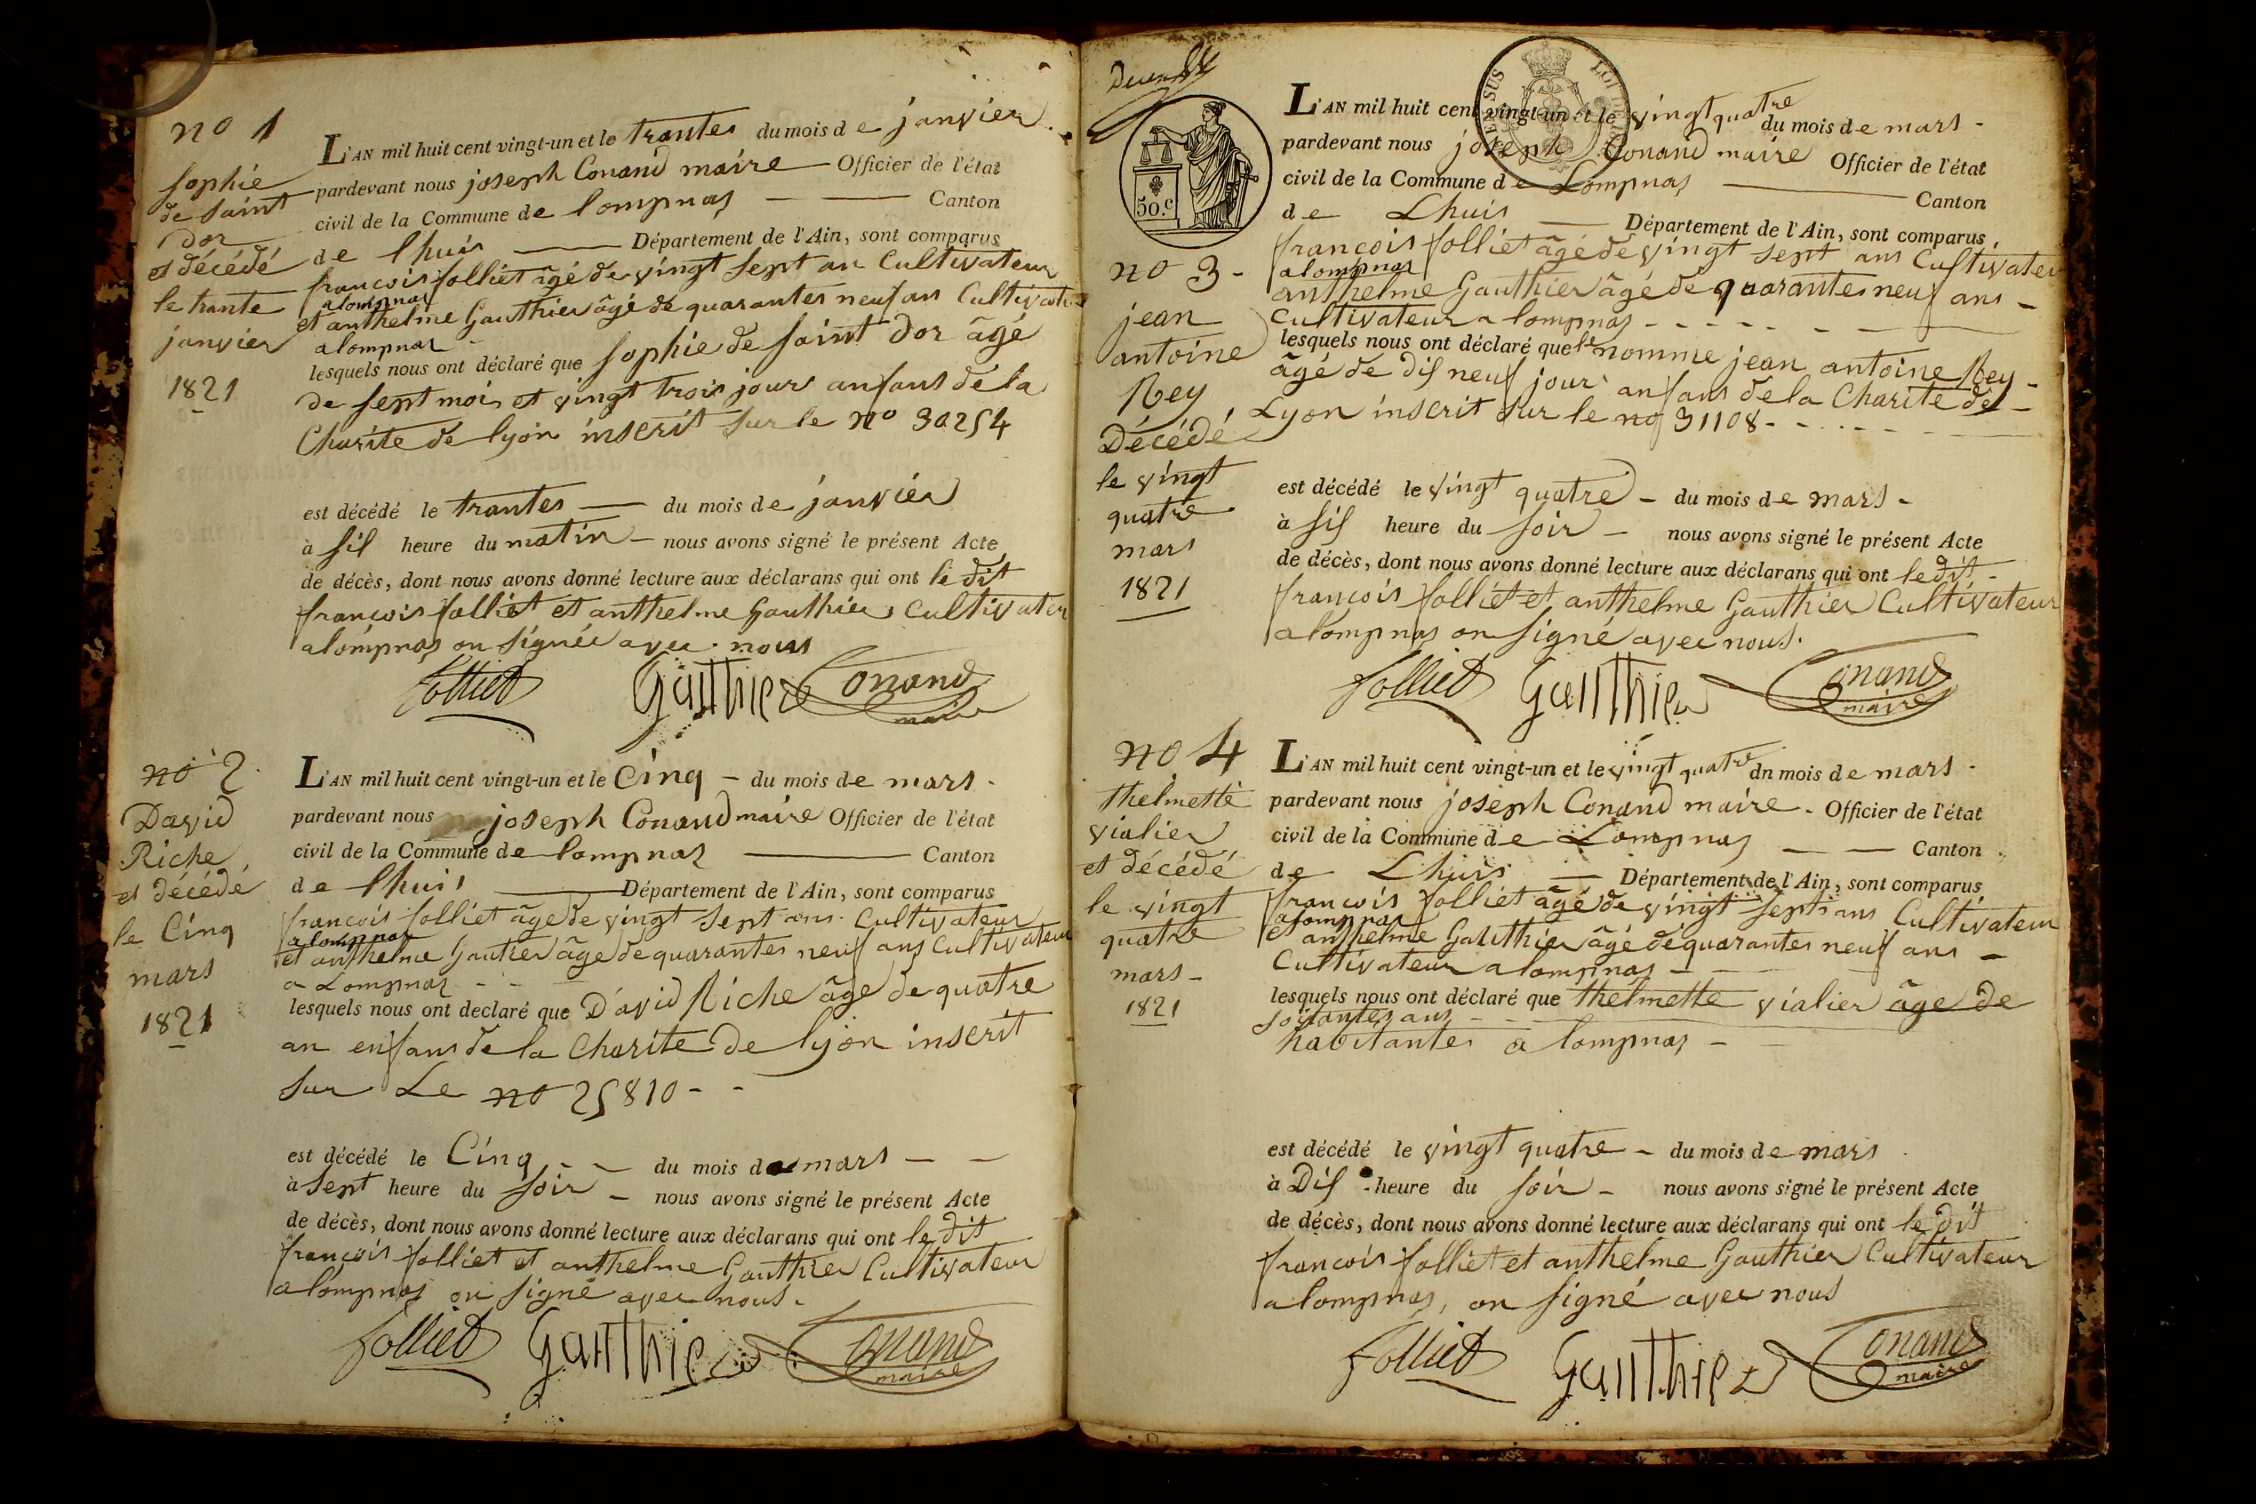 no 1
Sophie
de Saint
Dor
et décédé
le trante
janvier
1821
L'AN mil huit cent vingt-un et le trantes du mois de janvier.
pardevant nous joseph Conand maire — Officier de l'état
civil de la Commune de lompnas — — Canton
de lhuis — Département de l'Ain, sont comparus
francois folliet âgé de vingt sept an Cultivateur
alompnas
et anthelme Gauthier âgé de quarantes neuf ans Cultivateur
alompnas
lesquels nous ont déclaré que Sophie de Saint Dor âgé
de sept mois et vingt trois jours anfans de la
Charite de lyon inscrit sur le no 30254
est décédé le trantes — du mois de janvier
à sis heure du matin — nous avons signé le présent Acte
de décès, dont nous avons donné lecture aux déclarans qui ont le dit
francois folliet et anthelme Gauthier Cultivateur
alompnas on signée avec nous
folliet Gauthier Conand
maire
no 2
David
Riche
et décédé
le Cinq
mars
1821
L'AN mil huit cent vingt-un et le Cinq — du mois de mars.
pardevant nous joseph Conand maire Officier de l'état
civil de la Commune de lompnas — Canton
de lhuis — Département de l'Ain, sont comparus
francois folliet âge de vingt sept ans Cultivateur
alompnas
et anthelme Gautier âge de quarantes neuf ans Cultivateur
a Lompnas - -
lesquels nous ont declaré que David Riche âge de quatre
an enfans de la Charite de lyon inscrit
sur Le no 25810 - -
est décédé le Cinq — — du mois de mars — —
à sept heure du soir — nous avons signé le présent Acte
de décès, dont nous avons donné lecture aux déclarans qui ont le dit
francois folliet et anthelme Gauthier Cultivateur
alompnas on signé avec nous.
folliet Gauthier Conand
maire
50.c
no 3 -
jean
antoine
Rey
Décédé
le vingt
quatre
mars
1821
L'AN mil huit cent vingt-un et le vingt quatre du mois de mars -
pardevant nous joseph Conand maire Officier de l'état
civil de la Commune de Lompnas — Canton
de Lhuis — Département de l'Ain, sont comparus
francois folliet âgé de vingt sept ans Cultivateur
alompnas
anthelme Gauthier âgé de quarantes neuf ans -
Cultivateur a lompnas - - - - - -
lesquels nous ont déclaré que le nomme jean antoine Rey -
âgé de dis neuf jour anfans de la Charite de -
Lyon inscrit sur le no 31108 - - - - -
est décédé le vingt quatre - du mois de mars -
à sis heure du soir - nous avons signé le présent Acte
de décès, dont nous avons donné lecture aux déclarans qui ont le dit -
francois folliet et anthelme Gauthier Cultivateur
alompnas on signé avec nous.
folliet Gauthier Conand
maire
no 4
thelmette
vialier
et décédé
le vingt
quatre
mars -
1821
L'AN mil huit cent vingt-un et le vingt quatre dn mois de mars -
pardevant nous joseph Conand maire - Officier de l'état
civil de la Commune de Lompnas — — Canton
de Lhuis — Département de l'Ain, sont comparus
francois folliet âgé de vingt sept ans Cultivateur
alompnas
et anthelme Gauthier âgé de quarantes neuf ans -
Cultivateur a lompnas -
lesquels nous ont déclaré que thelmette vialier âge de
soisantes ans - -
habitantes a lompnas -
est décédé le vingt quatre - du mois de mars
à Dis heure du soir - nous avons signé le présent Acte
de décès, dont nous avons donné lecture aux déclarans qui ont le dit
francois folliet et anthelme Gauthier Cultivateur
a lompnas, on signé avec nous
folliet Gauthier Conand
maire